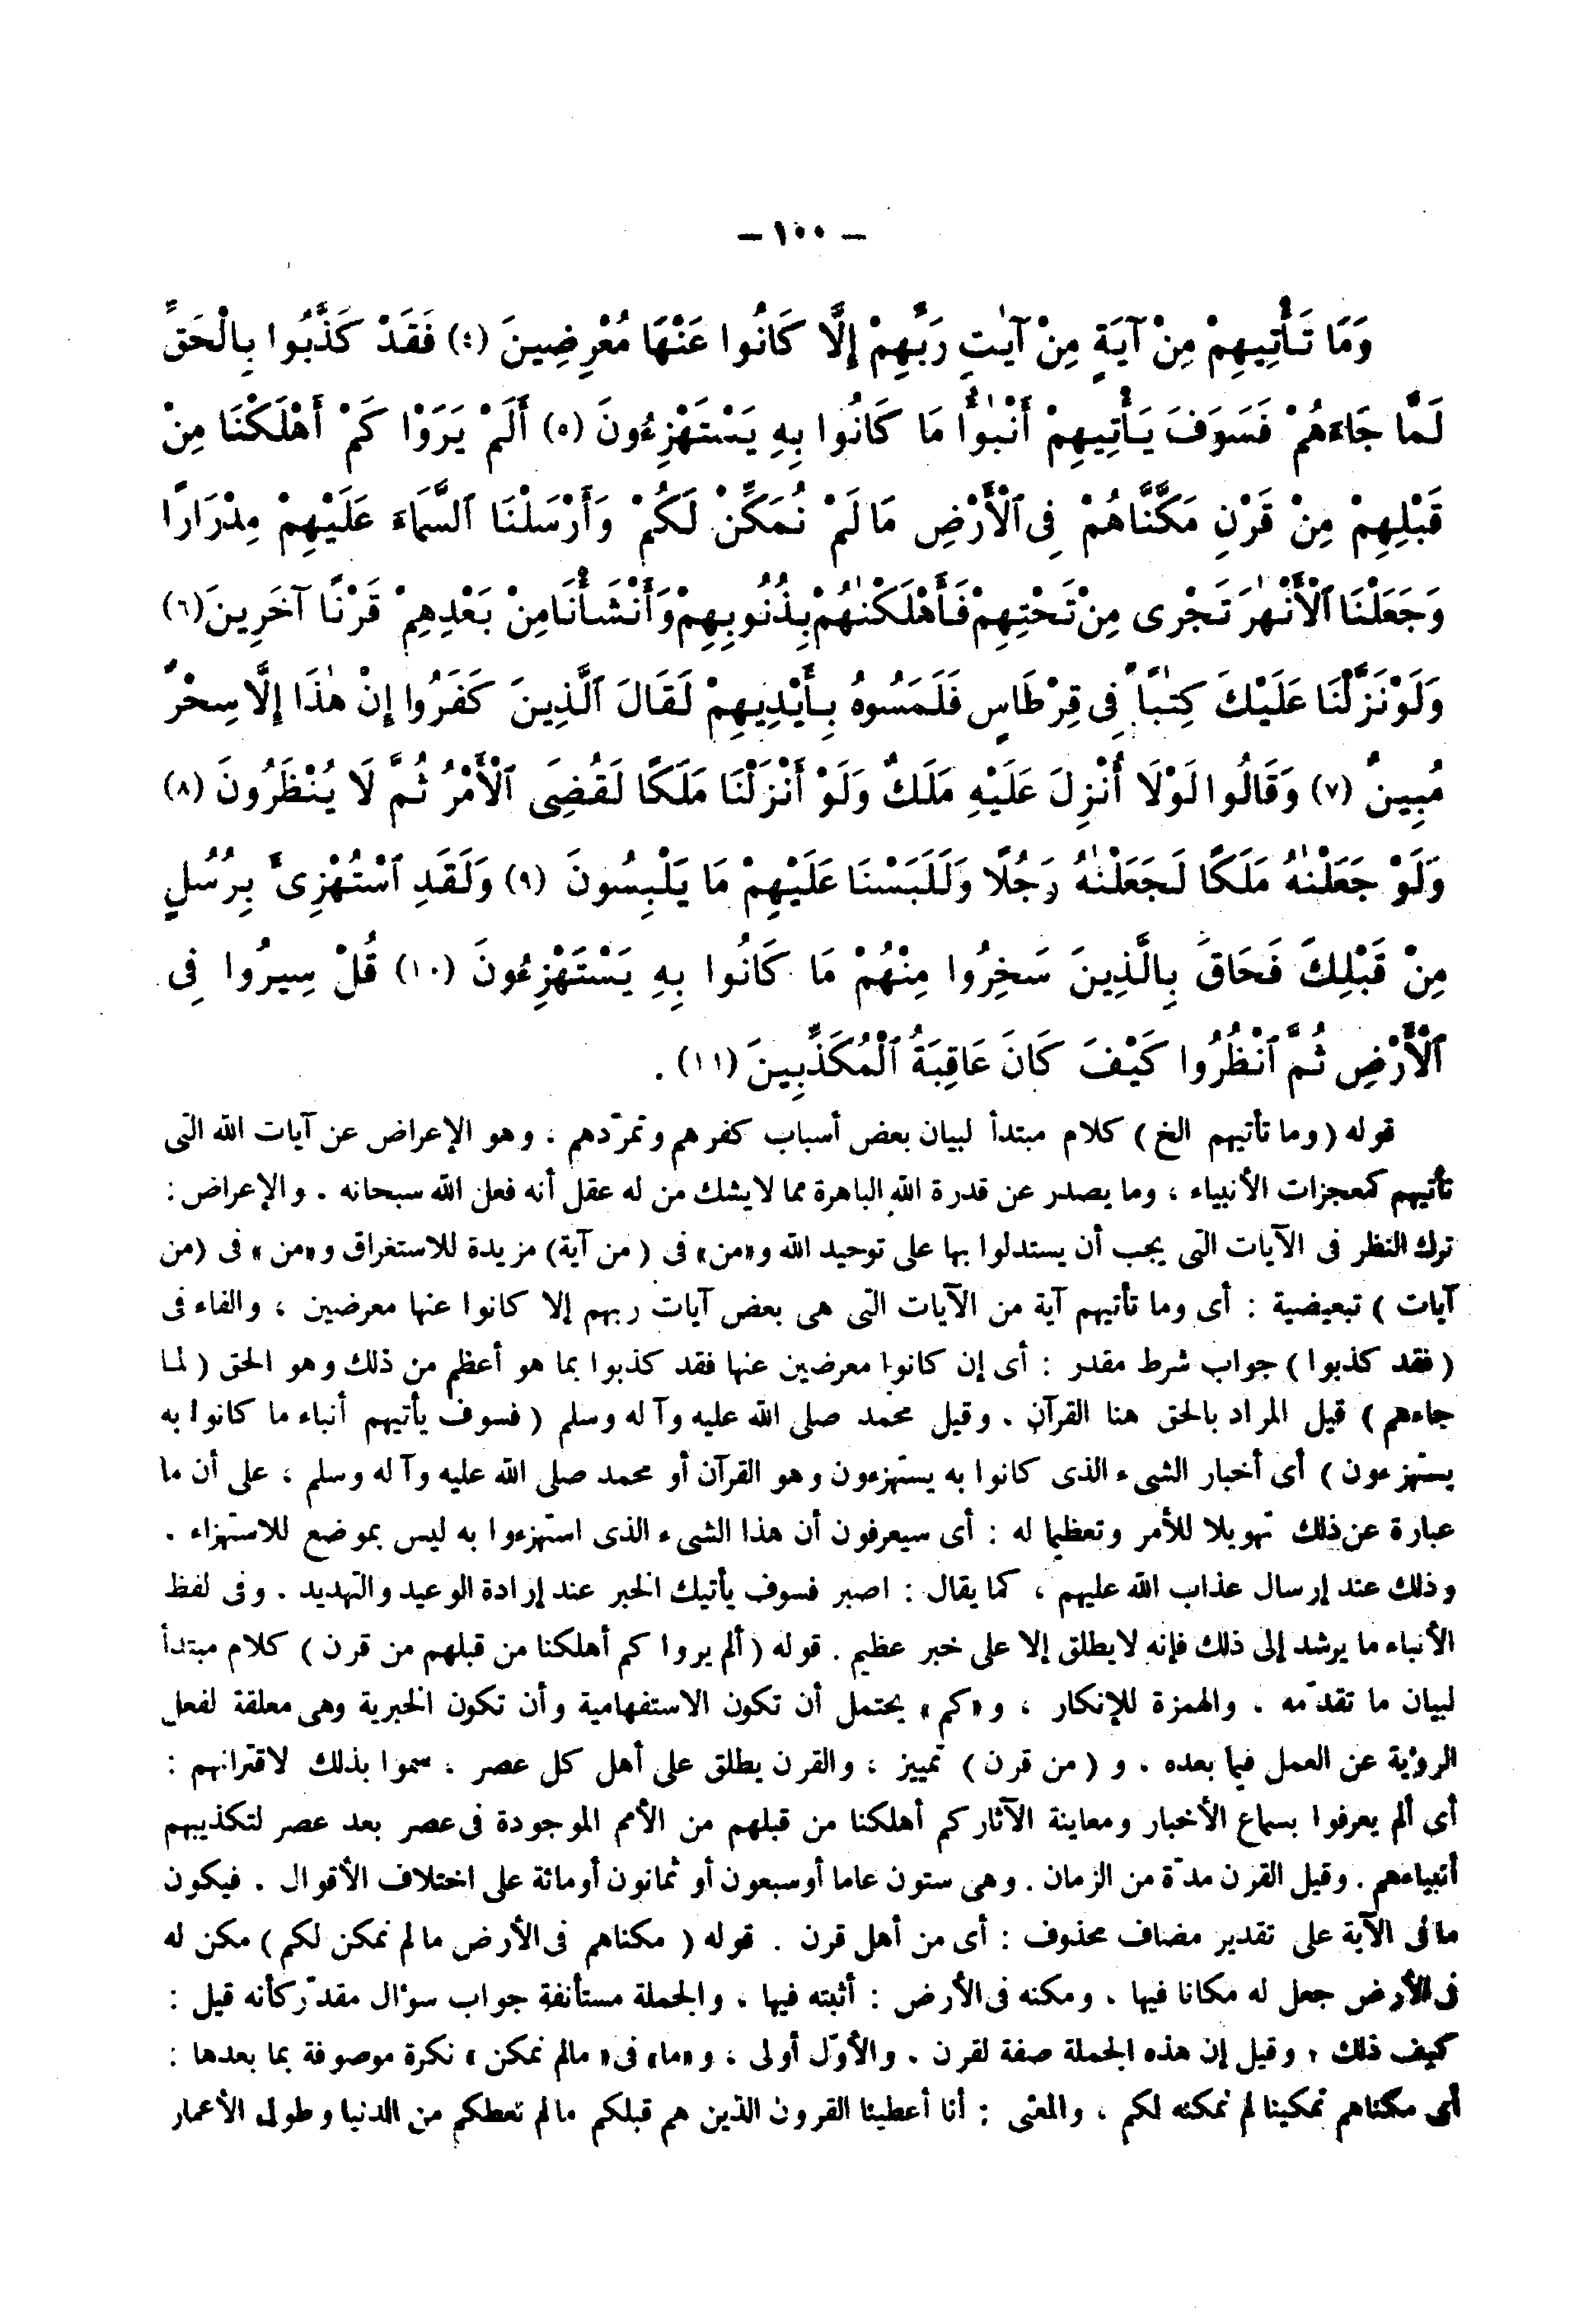 — ١٠٠ —
وَمَا تَأْتِيهِمْ مِنْ آيَةٍ مِنْ آيٰتِ رَبِّهِمْ إِلَّا كَانُوا عَنْهَا مُعْرِضِينَ (٤) فَقَدْ كَذَّبُوا بِالْحَقِّ
لَمَّا جَاءَهُمْ فَسَوَفَ يَأْتِيهِمْ أَنْبٰؤُا مَا كَانُوا بِهِ يَسْتَهْزِءُونَ (٥) أَلَمْ يَرَوْا كَمْ أَهْلَكْنَا مِنْ
قَبْلِهِمْ مِنْ قَرْنٍ مَكَّنَّاهُمْ فِى ٱلْأَرْضِ مَا لَمْ نُمَكِّنْ لَكُمْ وَأَرْسَلْنَا ٱلسَّمَاءَ عَلَيْهِمْ مِدْرَارًا
وَجَعَلْنَا ٱلْأَنْهٰرَ تَجْرِى مِنْ تَحْتِهِمْ فَأَهْلَكْنٰهُمْ بِذُنُوبِهِمْ وَأَنْشَأْنَا مِنْ بَعْدِهِمْ قَرْنًا آخَرِينَ (٦)
وَلَوْ نَزَّلْنَا عَلَيْكَ كِتٰبًا فِى قِرْطَاسٍ فَلَمَسُوهُ بِأَيْدِيهِمْ لَقَالَ ٱلَّذِينَ كَفَرُوا إِنْ هٰذَا إِلَّا سِحْرٌ
مُبِينٌ (٧) وَقَالُوا لَوْلَا أُنْزِلَ عَلَيْهِ مَلَكٌ وَلَوْ أَنْزَلْنَا مَلَكًا لَقُضِىَ ٱلْأَمْرُ ثُمَّ لَا يُنْظَرُونَ (٨)
وَلَوْ جَعَلْنٰهُ مَلَكًا لَجَعَلْنٰهُ رَجُلًا وَلَلَبَسْنَا عَلَيْهِمْ مَا يَلْبِسُونَ (٩) وَلَقَدِ ٱسْتُهْزِئَ بِرُسُلٍ
مِنْ قَبْلِكَ فَحَاقَ بِالَّذِينَ سَخِرُوا مِنْهُمْ مَا كَانُوا بِهِ يَسْتَهْزِءُونَ (١٠) قُلْ سِيرُوا فِى
ٱلْأَرْضِ ثُمَّ ٱنْظُرُوا كَيْفَ كَانَ عَاقِبَةُ ٱلْمُكَذِّبِينَ (١١) .
قوله (وما تأتيهم الخ) كلام مبتدأ لبيان بعض أسباب كفرهم وتمرّدهم ، وهو الإعراض عن آيات الله التى
تأتيهم كمعجزات الأنبياء ، وما يصدر عن قدرة الله الباهرة مما لا يشك من له عقل أنه فعل الله سبحانه . والإعراض :
ترك النظر فى الآيات التى يجب أن يستدلوا بها على توحيد الله و«من» فى (من آية) مزيدة للاستغراق و«من» فى (من
آيات ) تبعيضية : أى وما تأتيهم آية من الآيات التى هى بعض آيات ربهم إلا كانوا عنها معرضين ، والفاء فى
( فقد كذبوا ) جواب شرط مقدر : أى إن كانوا معرضين عنها فقد كذبوا بما هو أعظم من ذلك وهو الحق ( لما
جاءهم ) قيل المراد بالحق هنا القرآن ، وقيل محمد صلى الله عليه وآله وسلم ( فسوف يأتيهم أنباء ما كانوا به
يستهزءون ) أى أخبار الشىء الذى كانوا به يستهزءون وهو القرآن أو محمد صلى الله عليه وآله وسلم ، على أن ما
عبارة عن ذلك تهويلا للأمر وتعظيما له : أى سيعرفون أن هذا الشىء الذى استهزءوا به ليس بموضع للاستهزاء .
وذلك عند إرسال عذاب الله عليهم ، كما يقال : اصبر فسوف يأتيك الخبر عند إرادة الوعيد والتهديد . وفى لفظ
الأنباء ما يرشد إلى ذلك فإنه لا يطلق إلا على خبر عظيم . قوله ( ألم يروا كم أهلكنا من قبلهم من قرن ) كلام مبتدأ
لبيان ما تقدّمه ، والهمزة للإنكار ، و«كم» يحتمل أن تكون الاستفهامية وأن تكون الخبرية وهى معلقة لفعل
الرؤية عن العمل فيما بعده ، و ( من قرن ) تمييز ، والقرن يطلق على أهل كل عصر ، سموا بذلك لاقترانهم :
أى ألم يعرفوا بسماع الأخبار ومعاينة الآثار كم أهلكنا من قبلهم من الأمم الموجودة فى عصر بعد عصر لتكذيبهم
أنبياءهم . وقيل القرن مدّة من الزمان . وهى ستون عاما أو سبعون أو ثمانون أو مائة على اختلاف الأقوال . فيكون
ما فى الآية على تقدير مضاف محذوف : أى من أهل قرن . قوله ( مكناهم فى الأرض ما لم نمكن لكم ) مكن له
فى الأرض جعل له مكانا فيها ، ومكنه فى الأرض : أثبته فيها ، والجملة مستأنفة جواب سؤال مقدّر كأنه قيل :
كيف ذلك ، وقيل إن هذه الجملة صفة لقرن . والأوّل أولى ، و«ما» فى «ما لم نمكن» نكرة موصوفة بما بعدها :
أى مكناهم تمكينا لم نمكنه لكم ، والمعنى : أنا أعطينا القرون الذين هم قبلكم ما لم نعطكم من الدنيا وطول الأعمار